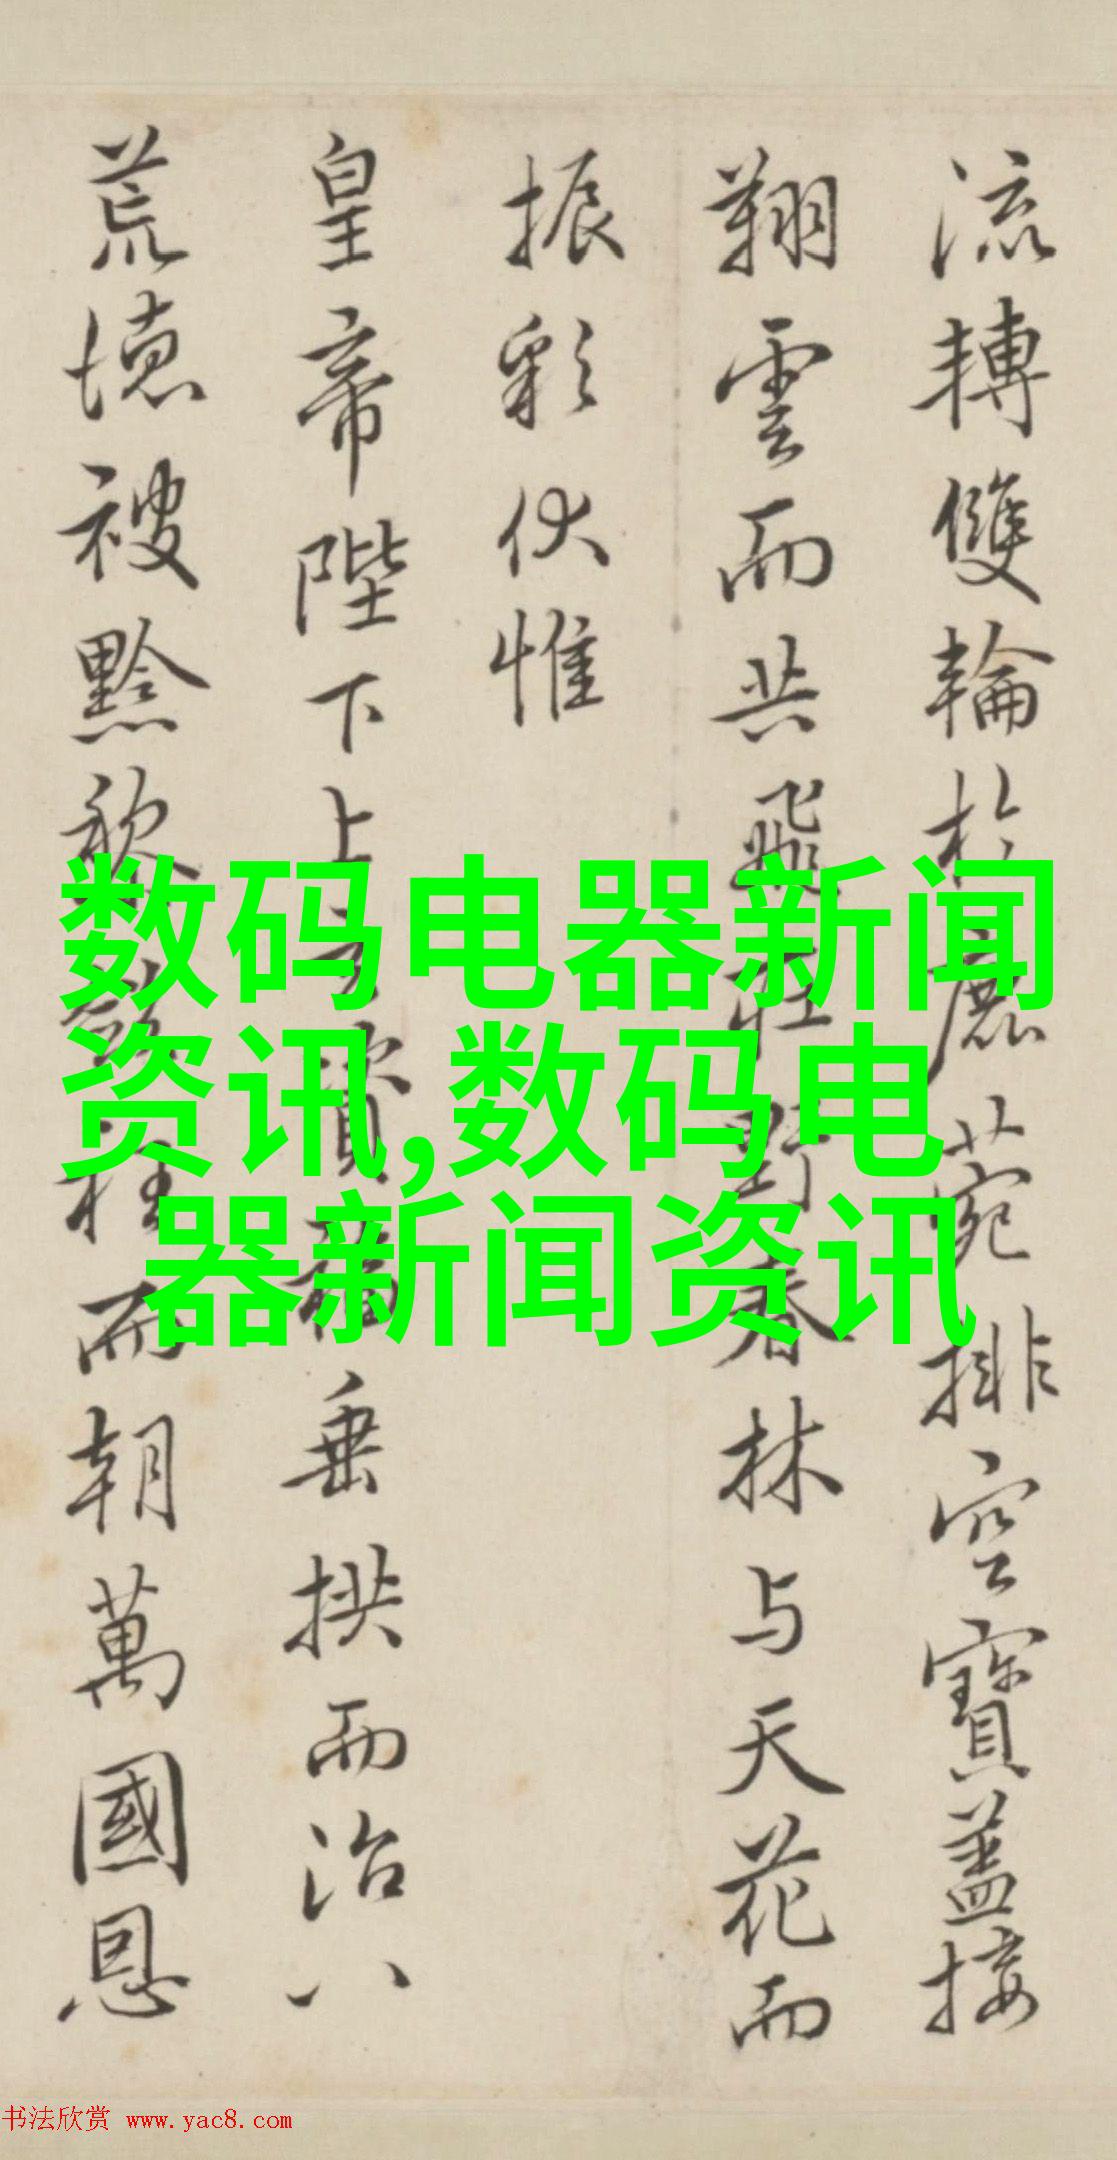 流轉雙輪於鹿菀排空寶蓋接
翔雲而共飛莊野春林与天花而
振彩伏惟
皇帝陛下上玄資福垂拱而治八
荒德被黔黎斂衽而朝萬國恩
数码电器新闻
资讯,数码电
器新闻资讯
书法欣赏 www.yac8.com